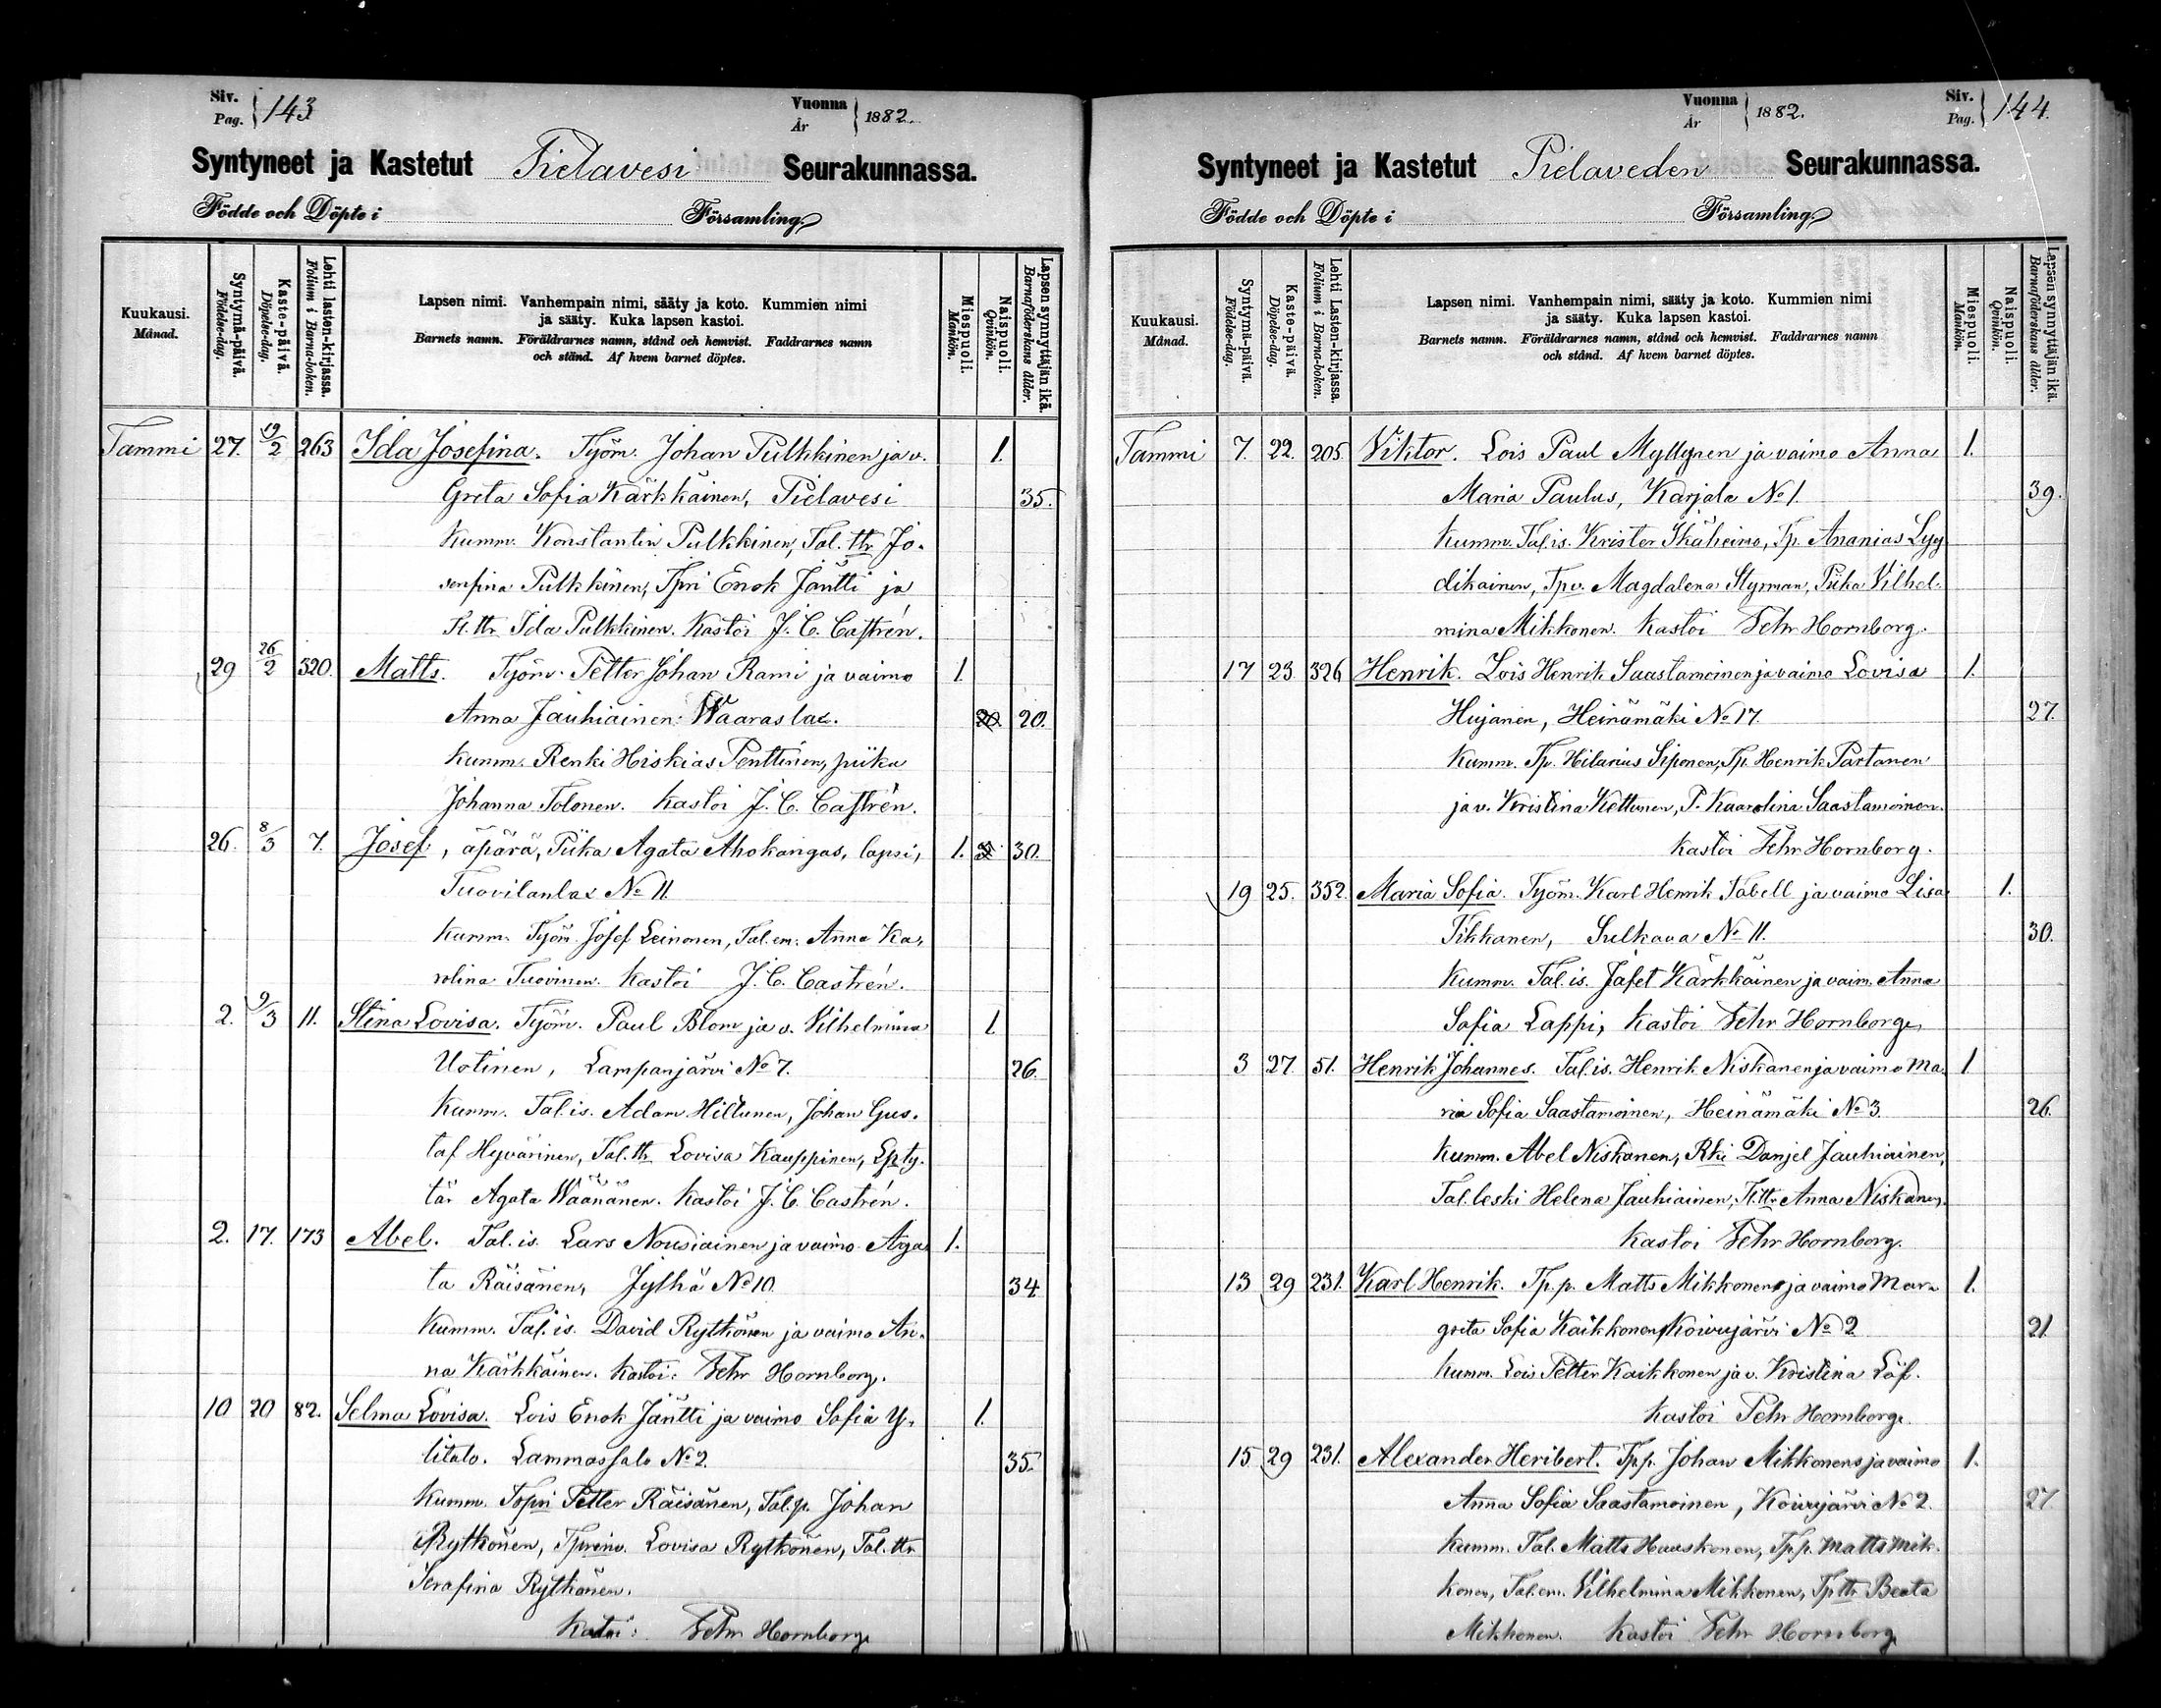 Siv. Pag. 143
Vuonna År 1882.
Syntyneet ja Kastetut Pielavesi Seurakunnassa.
Födde och Döpte i Församling.
Kuukausi. Månad.
Syntymä-päivä. Födelse-dag.
Kaste-päivä. Döpelse-dag.
Lehti lasten-kirjassa. Folium i Barna-boken.
Lapsen nimi. Vanhempain nimi, sääty ja koto. Kummien nimi
ja sääty. Kuka lapsen kastoi.
Barnets namn. Föräldrarnes namn, stånd och hemvist. Faddrarnes namn
och stånd. Af hvem barnet döptes.
Miespuoli. Mankön.
Naispuoli. Qvinkön.
Lapsen synnyttäjän ikä. Barnaföderskans ålder.
Tammi 27. 19/2 263 Ida Josefina. Työm. Johan Pulkkinen ja v. 1.
Greta Sofia Kärkkäinen, Pielavesi 35.
Kumm. Konstantin Pulkkinen, Tal. ttr Jo-
senfina Pulkkinen, Tpri Enok Jäntti ja
It. ttr Ida Pulkkinen. Kastoi J. C. Castrén.
29 26/2 320. Matts. Työm. Petter Johan Rami ja vaimo 1.
Anna Jauhiainen. Waaraslax. 20.
Kumm. Renki Hiskias Penttinen, piika
Johanna Tolonen. Kastoi J. C. Castrén.
26. 8/3 7. Josef, äpärä, Piika Agata Ahokangas, lapsi, 1. 30.
Tuovilanlax No 11.
Kumm. Työm. Josef Leinonen, Tal. em. Anna Ka-
rolina Tuovinen. Kastoi J. C. Castrén.
2. 9/3 11. Stina Lovisa. Työm. Paul Blom ja v. Vilhelmina 1.
Uotinen, Lampanjärvi No 7. 26.
Kumm. Tal. is. Adam Hiltunen, Johan Gus-
taf Hyvärinen, Tal. ttr Lovisa Kauppinen, Epty-
tär Agata Wäänänen. Kastoi J. C. Castrén.
2. 17. 173 Abel. Tal. is. Lars Nousiainen ja vaimo Aga- 1.
ta Räisänen, Jylhä No 10. 34
Kumm. Tal. is. David Rytkönen ja vaimo An-
na Kärkkäinen. Kastoi: Fehr Hornborg.
10 20 82. Selma Lovisa. Lois Enok Jäntti ja vaimo Sofia Y- 1.
litalo. Lammassalo No 2. 35.
Kumm. Petter Räisänen, Tal. p. Johan
Rytkönen, Lovisa Rytkönen, Tal. ttr
Serafina Rytkönen.
Kastoi: Fehr Hornborg
Vuonna År 1882.
Siv. Pag. 144.
Syntyneet ja Kastetut Pielaveden Seurakunnassa.
Födde och Döpte i Församling.
Kuukausi. Månad.
Syntymä-päivä. Födelse-dag.
Kaste-päivä. Döpelse-dag.
Lehti Lasten-kirjassa. Folium i Barna-boken.
Lapsen nimi. Vanhempain nimi, sääty ja koto. Kummien nimi
ja sääty. Kuka lapsen kastoi.
Barnets namn. Föräldrarnes namn, stånd och hemvist. Faddrarnes namn
och stånd. Af hvem barnet döptes.
Miespuoli. Mankön.
Naispuoli. Qvinkön.
Lapsen synnyttäjän ikä. Barnaföderskans ålder.
Tammi 7. 22. 205. Viktor. Lois Paul Myllynen ja vaimo Anna 1.
Maria Paulus, Karjala No 1. 39.
Kumm. Tal. is. Krister Ikäheimo, Tp. Ananias Lyy-
dikainen, Tpv. Magdalena Styrman, Piika Vilhel-
mina Mikkonen. Kastoi Fehr Hornborg.
17 23 326 Henrik. Lois Henrik Saastamoinen ja vaimo Lovisa 1.
Hujanen, Heinämäki No 17. 27.
Kumm. Tp. Hilarius Siponen, Tp. Henrik Partanen
ja v. Kristina Kettunen, P. Kaarolina Saastamoinen.
Kastoi Fehr Hornborg.
19 25. 352. Maria Sofia. Työm. Karl Henrik Tabell ja vaimo Lisa 1.
Tikkanen, Sulkava No 11. 30.
Kumm. Tal. is. Jafet Kärkkäinen ja vaim. Anna
Sofia Lappi, Kastoi Fehr Hornborg.
3 27. 51. Henrik Johannes. Tal. is. Henrik Niskanen ja vaimo Ma- 1
ria Sofia Saastamoinen, Heinämäki No 3. 26.
Kumm. Abel Niskanen, Rki Danjel Jauhiainen,
Tal. leski Helena Jauhiainen, It. ttr Anna Niskanen.
Kastoi Fehr Hornborg.
13 29 231. Karl Henrik. Tp. p. Matts Mikkonen ja vaimo Mar- 1.
greta Sofia Kaikkonen, Koivujärvi No 2 21
Kumm. Lois Petter Kaikkonen ja v. Kristina Löf.
Kastoi Fehr Hornborg.
15 29 231. Alexander Heribert. Tp. p. Johan Mikkonens ja vaimo 1.
Anna Sofia Saastamoinen, Koivujärvi No 2. 27
Kumm. Tal. Matts Hauskonen, Tp. p. Matts Mik-
konen, Tal. em. Vilhelmina Mikkonen, Tp ttr Beata
Mikkonen. Kastoi Fehr Hornborg